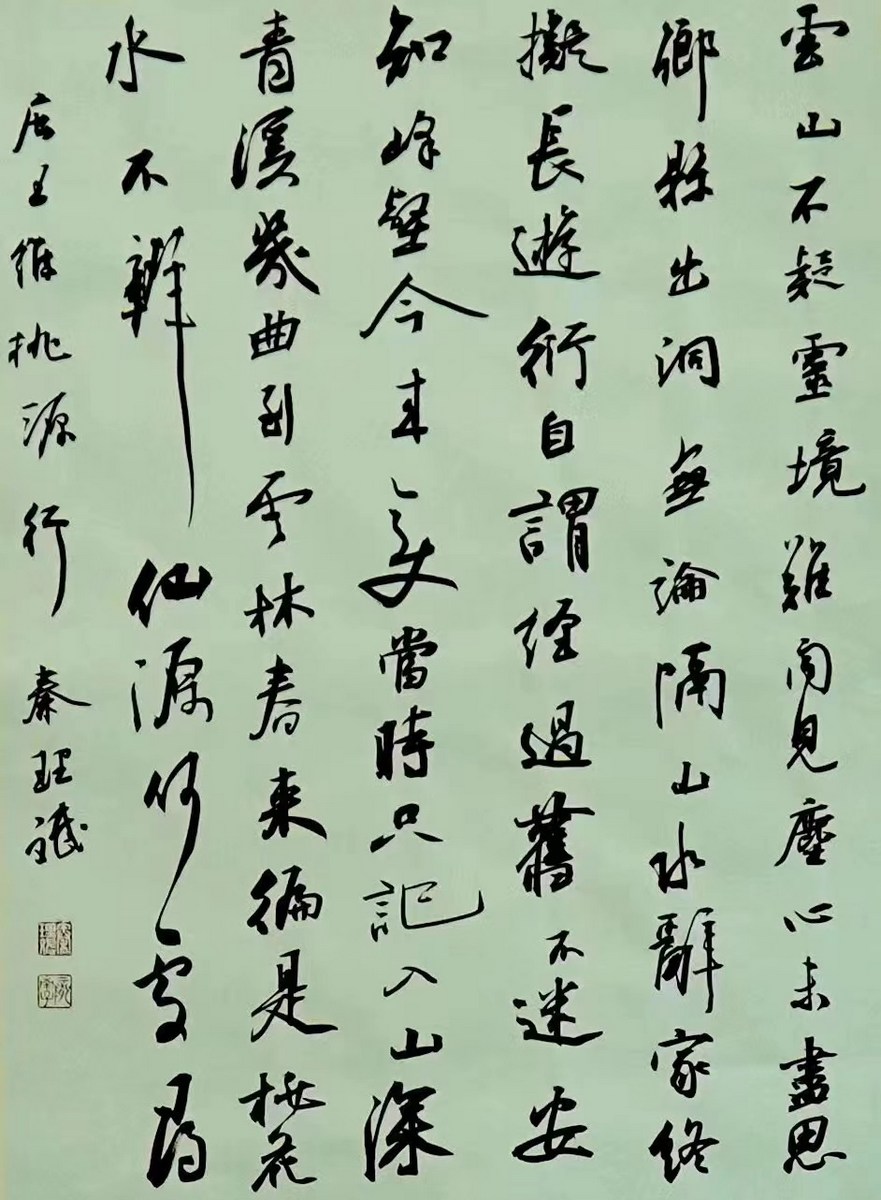 雲山不疑靈境難聞見塵心未盡思
鄉縣出洞無論隔山水辭家終
擬長遊衍自謂經過舊不迷安
知峰壑今來變當時只記入山深
青溪幾曲到雲林春來徧是桃花
水不辨仙源何處尋
唐王維桃源行 秦理斌